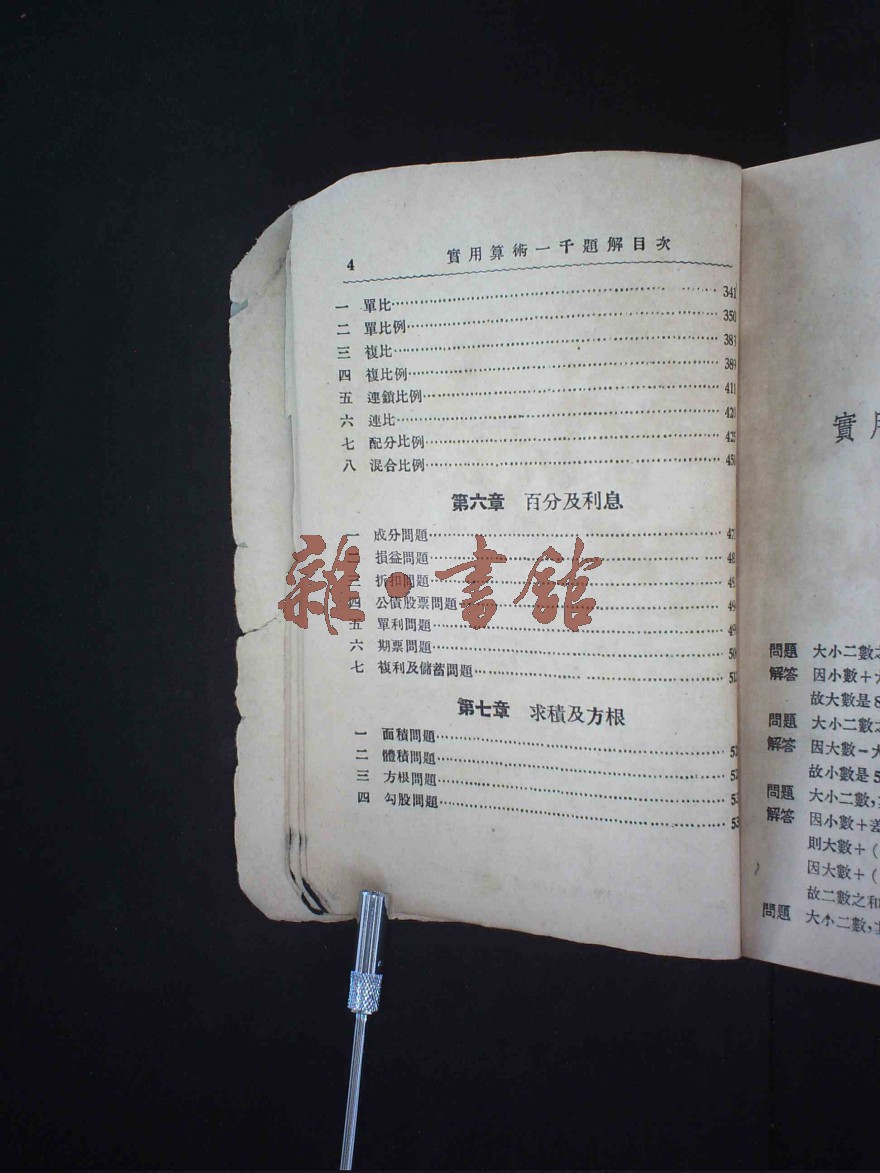 4
實用算術一千題解目次
一 單比 341
二 單比例 350
三 複比 383
四 複比例 389
五 連鎖比例 411
六 連比 420
七 配分比例 425
八 混合比例 450
第六章 百分及利息
一 成分問題 47
二 損益問題 48
三 折扣問題
四 公債股票問題 49
五 單利問題 49
六 期票問題 50
七 複利及儲蓄問題 51
第七章 求積及方根
一 面積問題 52
二 體積問題 52
三 方根問題 53
四 勾股問題 53
雜·書館
實用
問題 大小二數之
解答 因小數+大
故大數是8
問題 大小二數之
解答 因大數-大
故小數是5
問題 大小二數,
解答 因小數+差
則大數+(
因大數+(
故二數之和
問題 大小二數,其